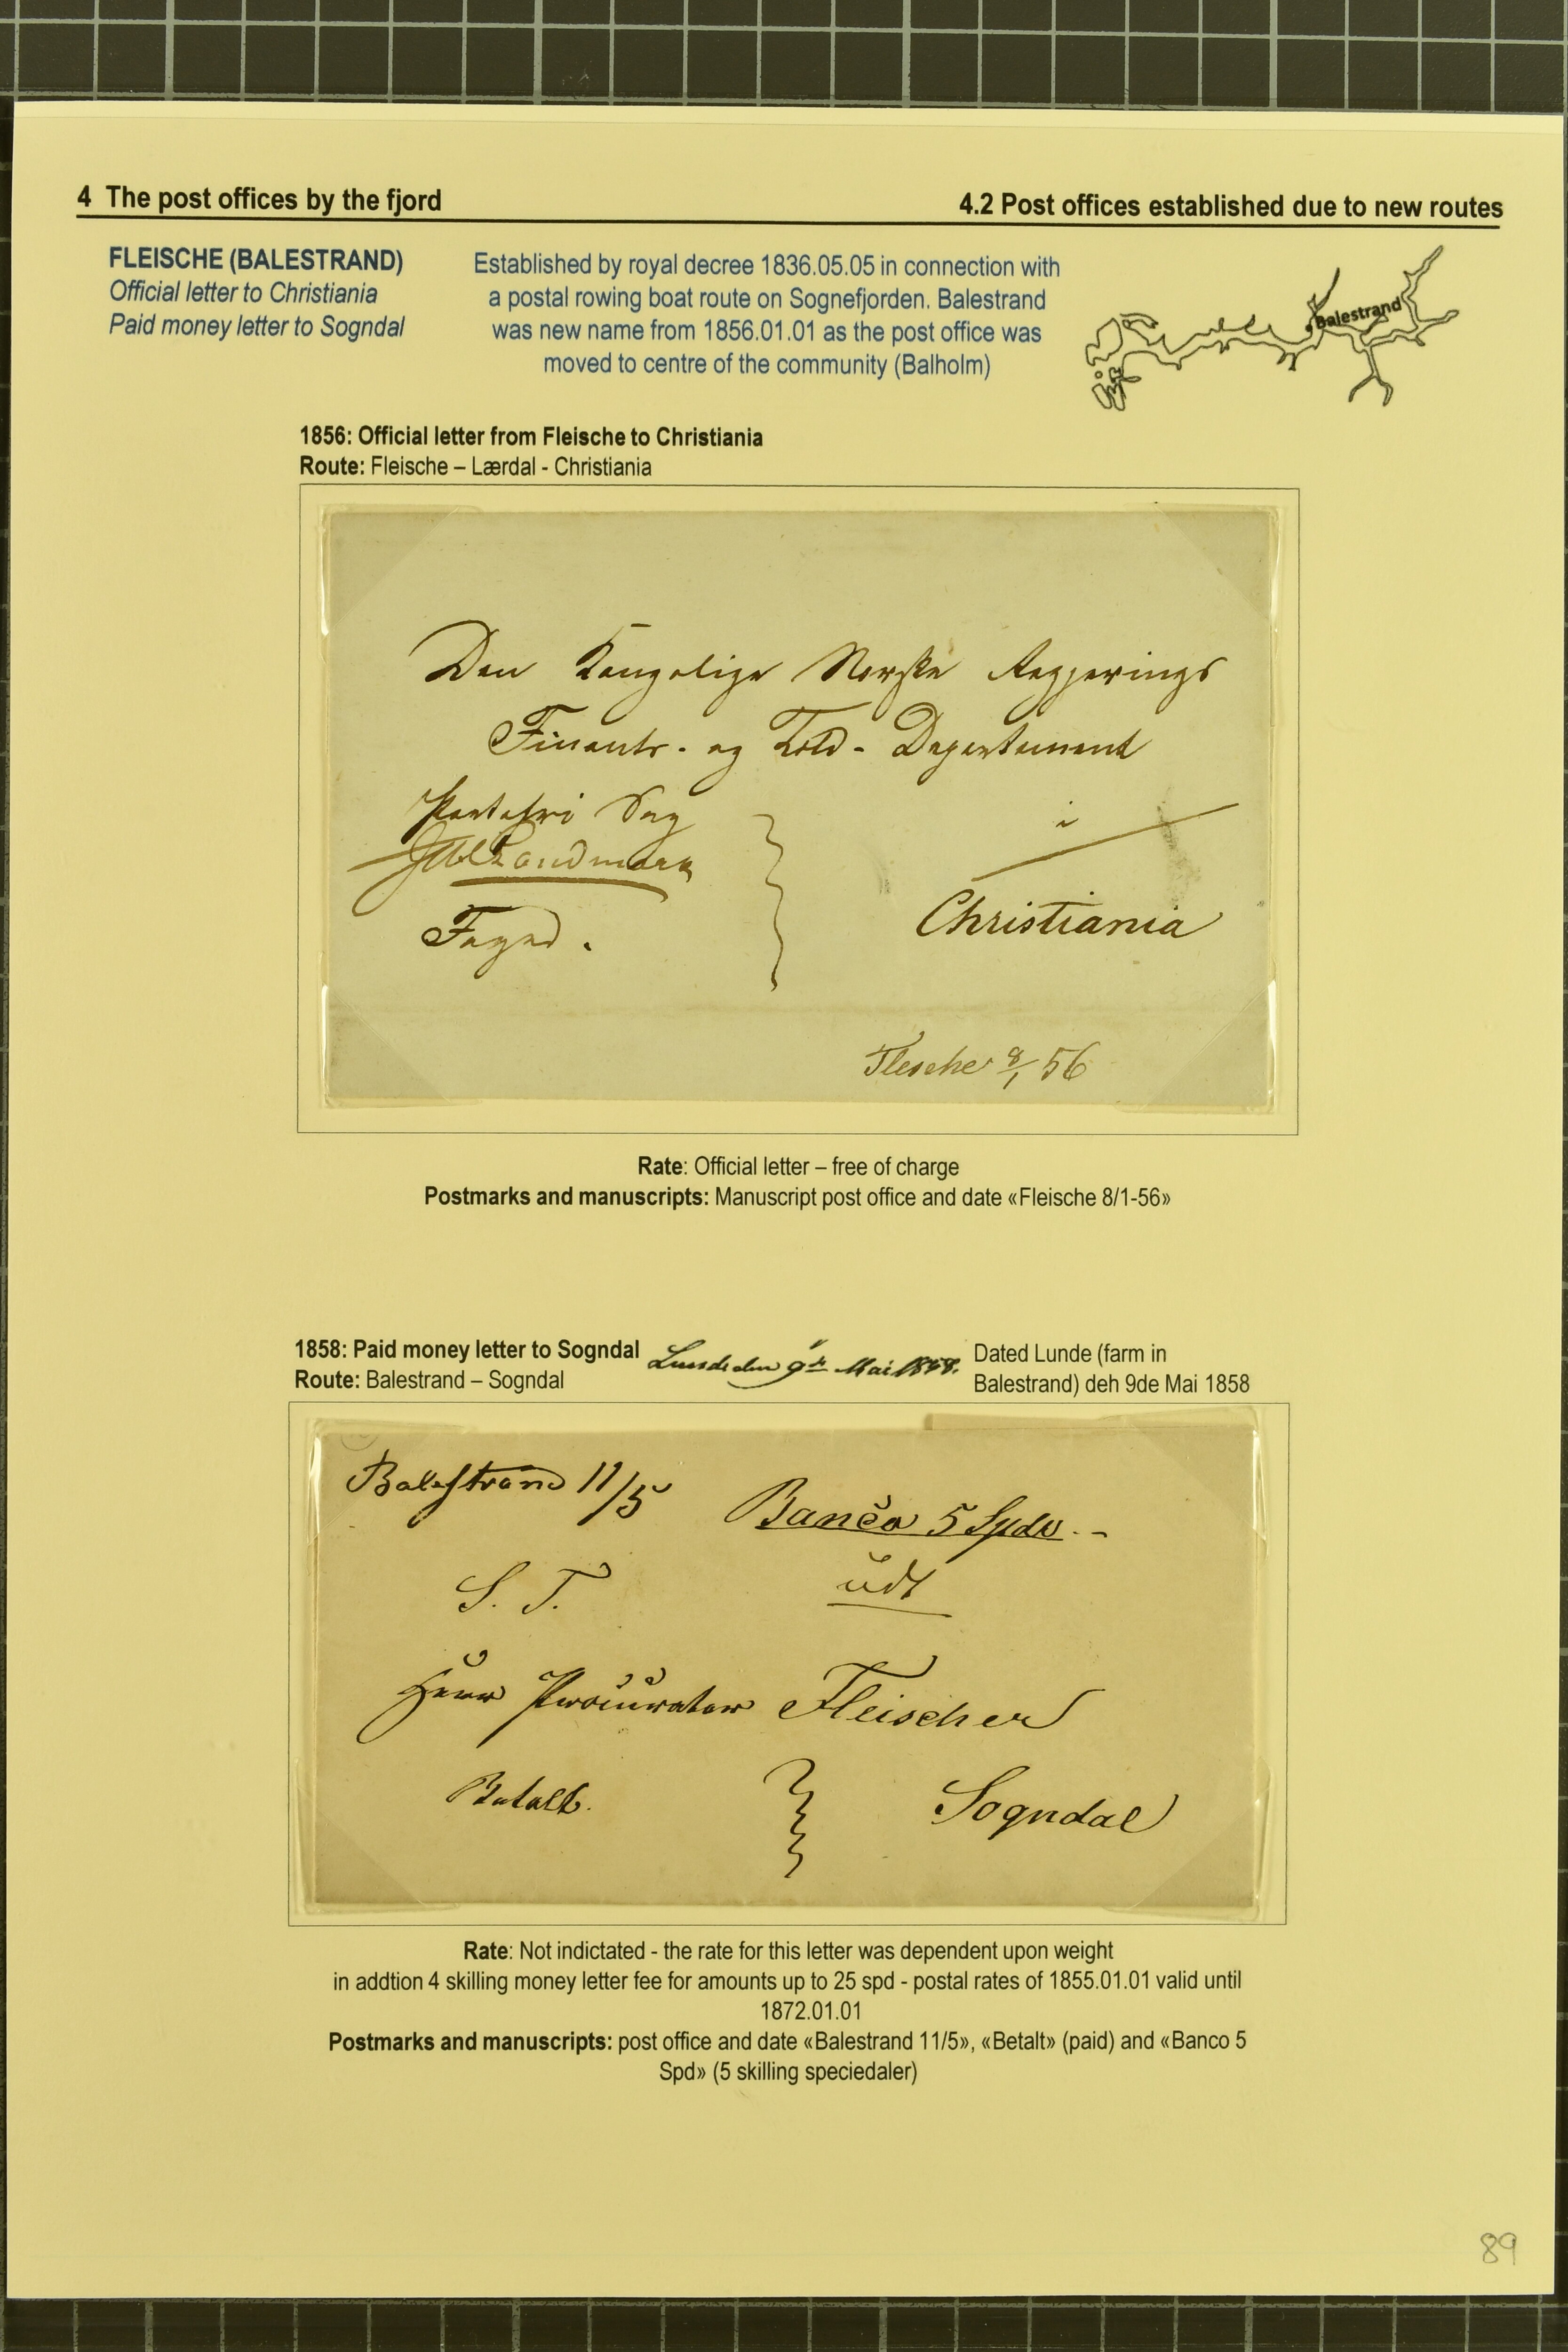 4 The post offices by the fjord
4.2 Post offices established due to new routes
FLEISCHE (BALESTRAND)
Official letter to Christiania
Paid money letter to Sogndal
Established by royal decree 1836.05.05 in connection with
a postal rowing boat route on Sognefjorden. Balestrand
was new name from 1856.01.01 as the post office was
moved to centre of the community (Balholm)
Balestrand
1856: Official letter from Fleische to Christiania
Route: Fleische – Lærdal - Christiania
Den Kongelige Norske Regjerings
Finants- og Told- Departement
Portofri Sag
Landmark
Foged.
i
Christiania
Flesche 8/1 56
Rate: Official letter – free of charge
Postmarks and manuscripts: Manuscript post office and date «Fleische 8/1-56»
1858: Paid money letter to Sogndal
Route: Balestrand – Sogndal
Lunde den 9de Mai 1858.
Dated Lunde (farm in
Balestrand) deh 9de Mai 1858
Balestrand 11/5
Banco 5 Spd
udt
S. T.
Herr Procurator Fleischer
Betalt.
Sogndal
Rate: Not indictated - the rate for this letter was dependent upon weight
in addtion 4 skilling money letter fee for amounts up to 25 spd - postal rates of 1855.01.01 valid until
1872.01.01
Postmarks and manuscripts: post office and date «Balestrand 11/5», «Betalt» (paid) and «Banco 5
Spd» (5 skilling speciedaler)
89